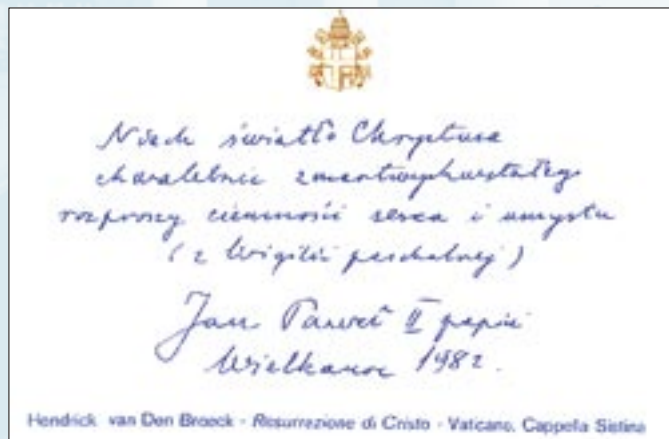 Niech światło Chrystusa
chwalebnie zmartwychwstałego
rozproszy ciemności serca i umysłu
(z Wigilii paschalnej)
Jan Paweł II papież
Wielkanoc 1982.
Hendrick van Den Broeck - Resurrezione di Cristo - Vaticano, Cappella Sistina